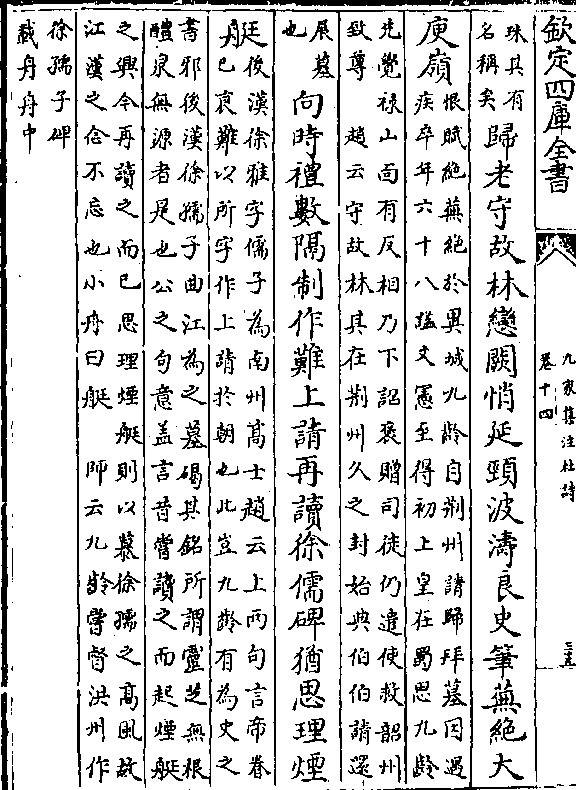 欽定四庫全書
九家集注杜詩
卷十四
三五
珠其有
名稱矣
歸老守故林戀闕悄延頸波濤良史筆蕪絶大
庾嶺
恨賦絶蕪絶於異域九齡自荆州請歸拜墓因過
疾卒年六十八諡文憲至得初上皇在蜀思九齡
先覺禄山面有反相乃下詔褒贈司徒仍遣使敕韶州
致尊 趙云守故林其在荆州久之封始興伯伯請還
展墓
也
向時禮數隔制作難上請再讀徐儒碑猶思理煙
艇
後漢徐雅字儒子為南州髙士趙云上兩句言帝眷
已衰難以所字作上請於朝也此豈九齡有為史之
書邪後漢徐孺子曲江為之墓碣其銘所謂靈芝無根
醴泉無源者是也公之句意盖言昔嘗讀之而起煙艇
之興今再讀之而已思理煙艇則以慕徐孺之髙風故
江漢之念不忘也小舟曰艇 師云九齡嘗督洪州作
徐孺子碑
載舟舟中